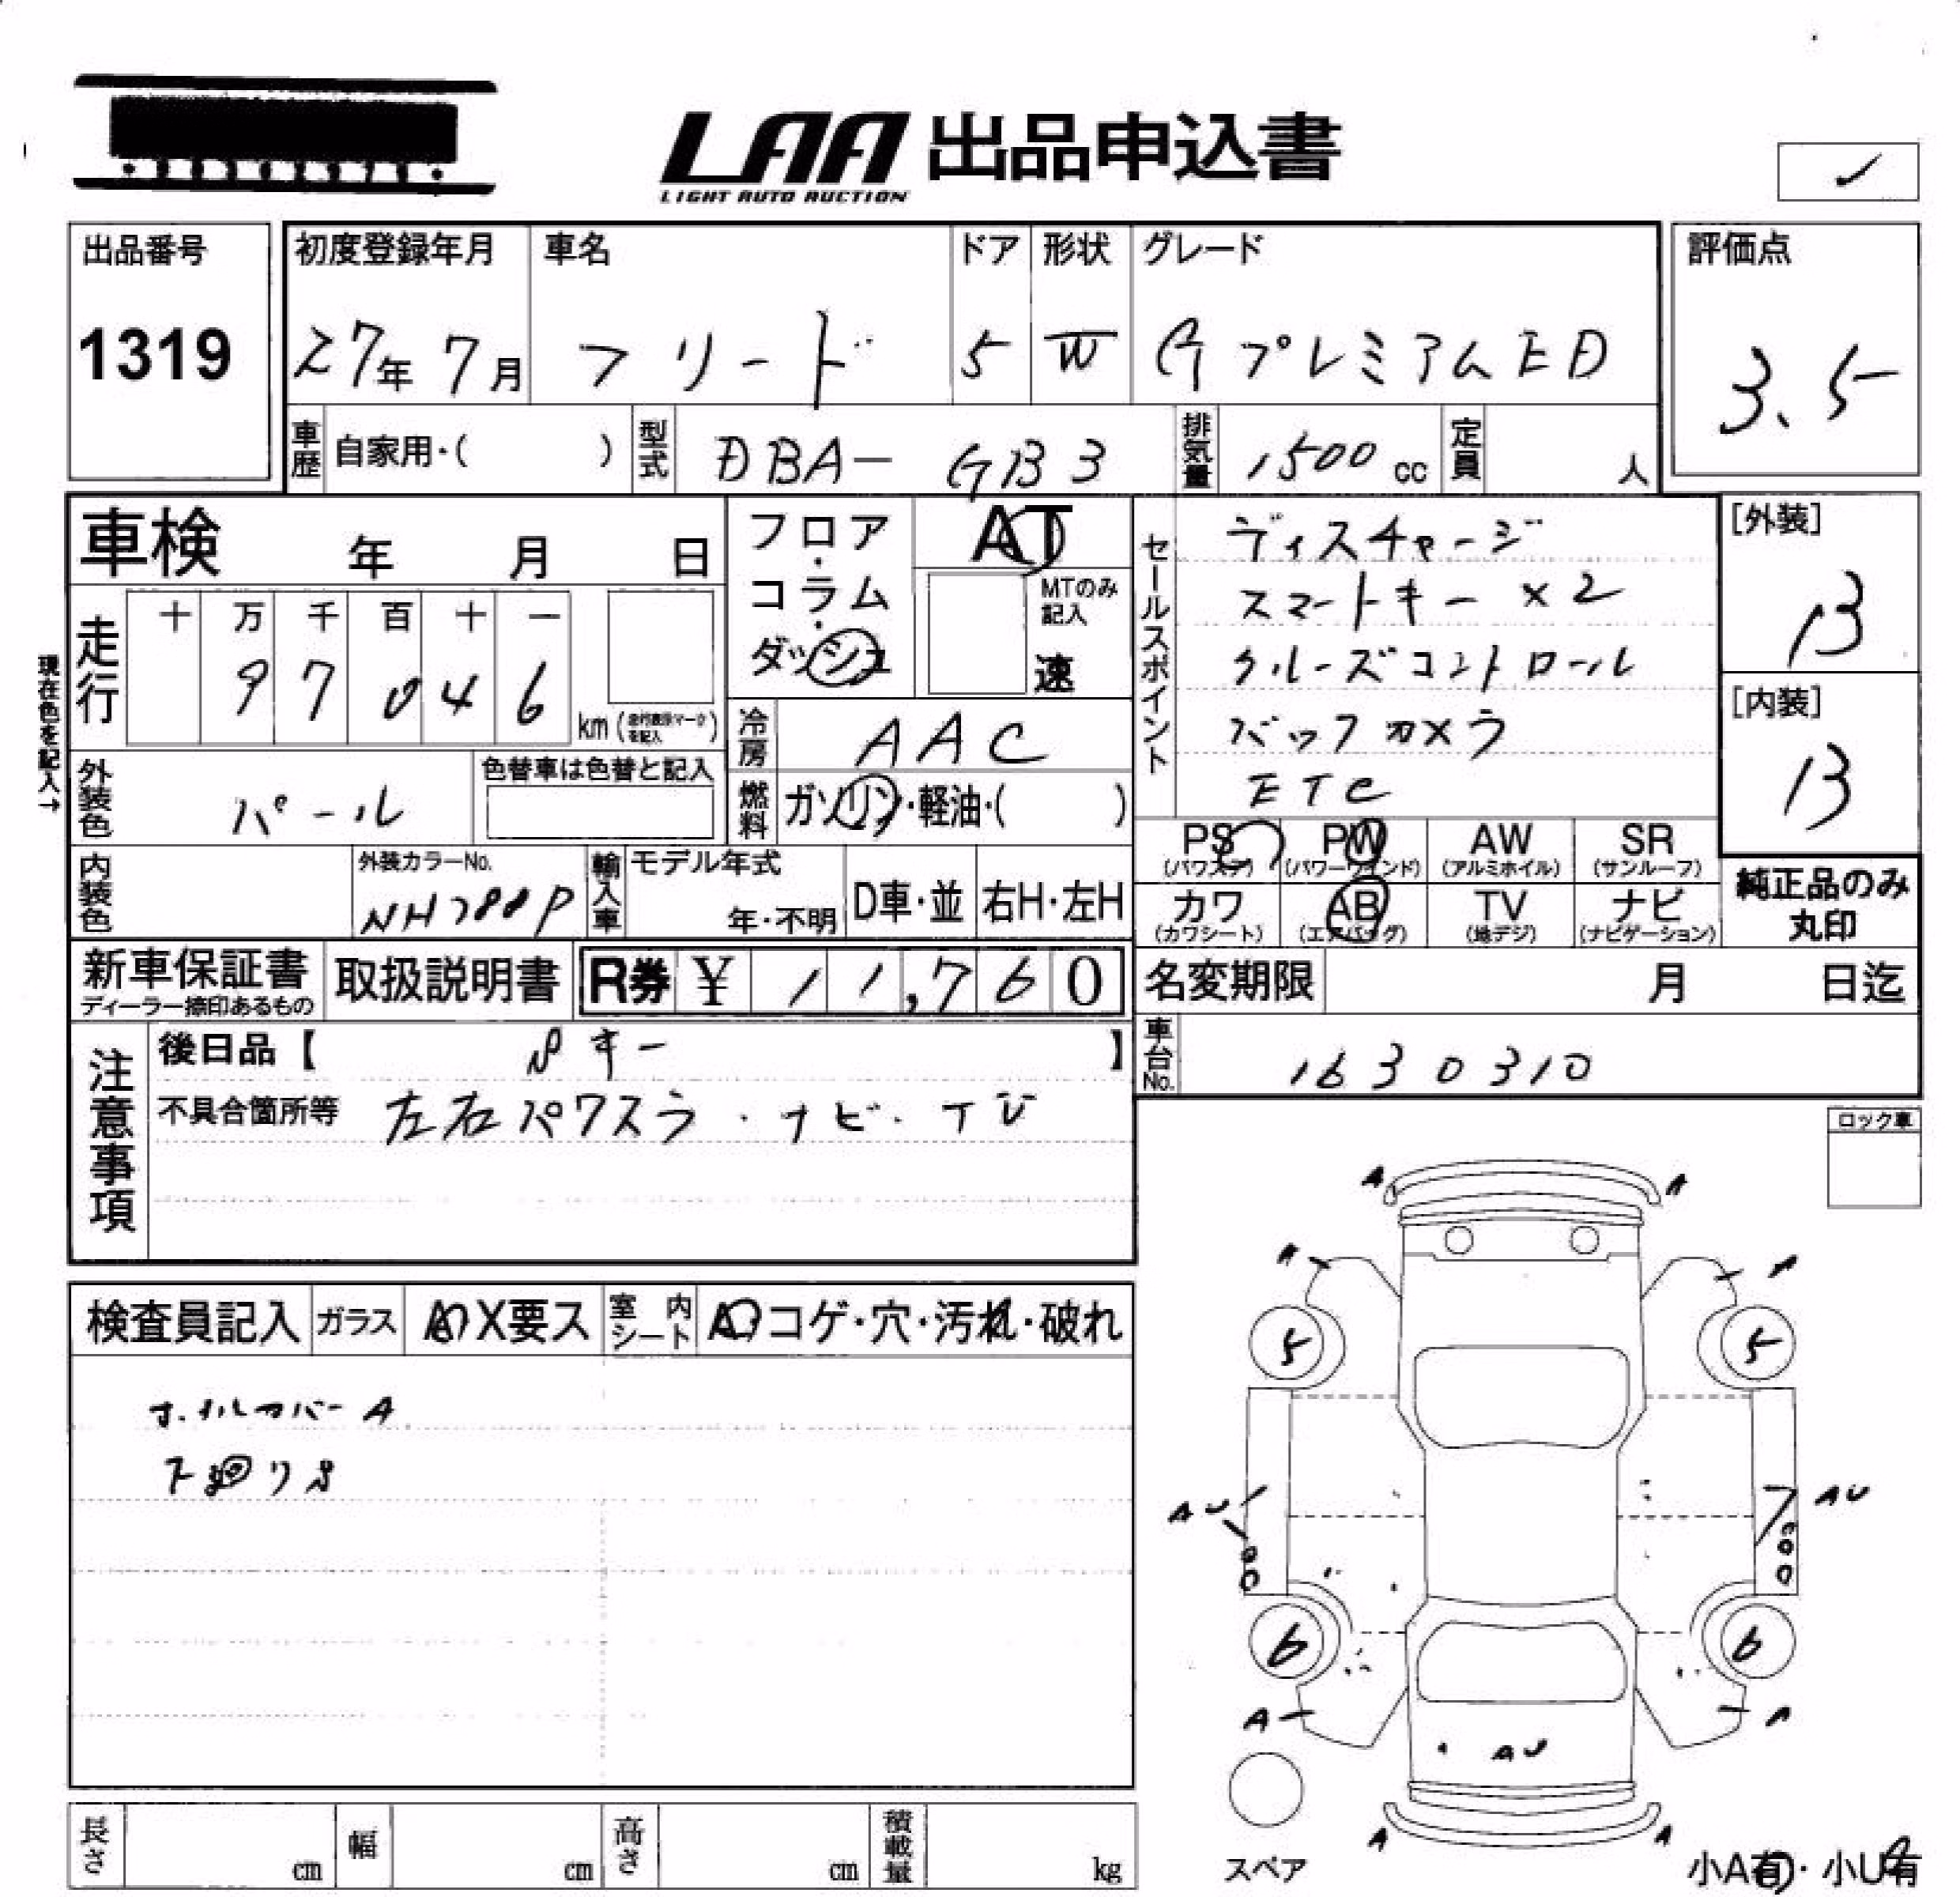 LAA 出品申込書
LIGHT AUTO AUCTION
✓
出品番号
1319
初度登録年月
27年 7月
車名
フリード
ドア
5
形状
W
グレード
GプレミアムED
評価点
3.5
車歴 自家用・( )
型式 DBA- GB3
排気量 1500 cc
定員 人
車検 年 月 日
フロア・コラム・ダッシュ
AT
MTのみ記入
速
セールスポイント
ディスチャージ
スマートキー ×2
クルーズコントロール
バックカメラ
ETC
[外装]
B
[内装]
B
現在色を記入→
走行
十 万 千 百 十 一
9 7 0 4 6
km (走行表示マークを記入)
冷房 AAC
外装色 パール
色替車は色替と記入
燃料 ガソリン・軽油・( )
PS (パワステ) PW (パワーウインド) AW (アルミホイル) SR (サンルーフ)
カワ (カワシート) AB (エアバッグ) TV (地デジ) ナビ (ナビゲーション)
純正品のみ丸印
内装色
外装カラーNo.
NH788P
輸入車 モデル年式
年・不明
D車・並
右H・左H
新車保証書
ディーラー捺印あるもの
取扱説明書
R券 ¥ 11,760
名変期限 月 日迄
車台No. 1630310
注意事項
後日品【 Pキー 】
不具合箇所等 左右パワスラ・ナビ・TV
ロック車
検査員記入
ガラス A X要ス
室内シート A コゲ・穴・汚れ・破れ
ホイルカバーA
下廻りS
A A
A A
5 5
AU AU
6 6
A A
AU
A A
スペア
小A有・小U有
長さ cm
幅 cm
高さ cm
積載量 kg